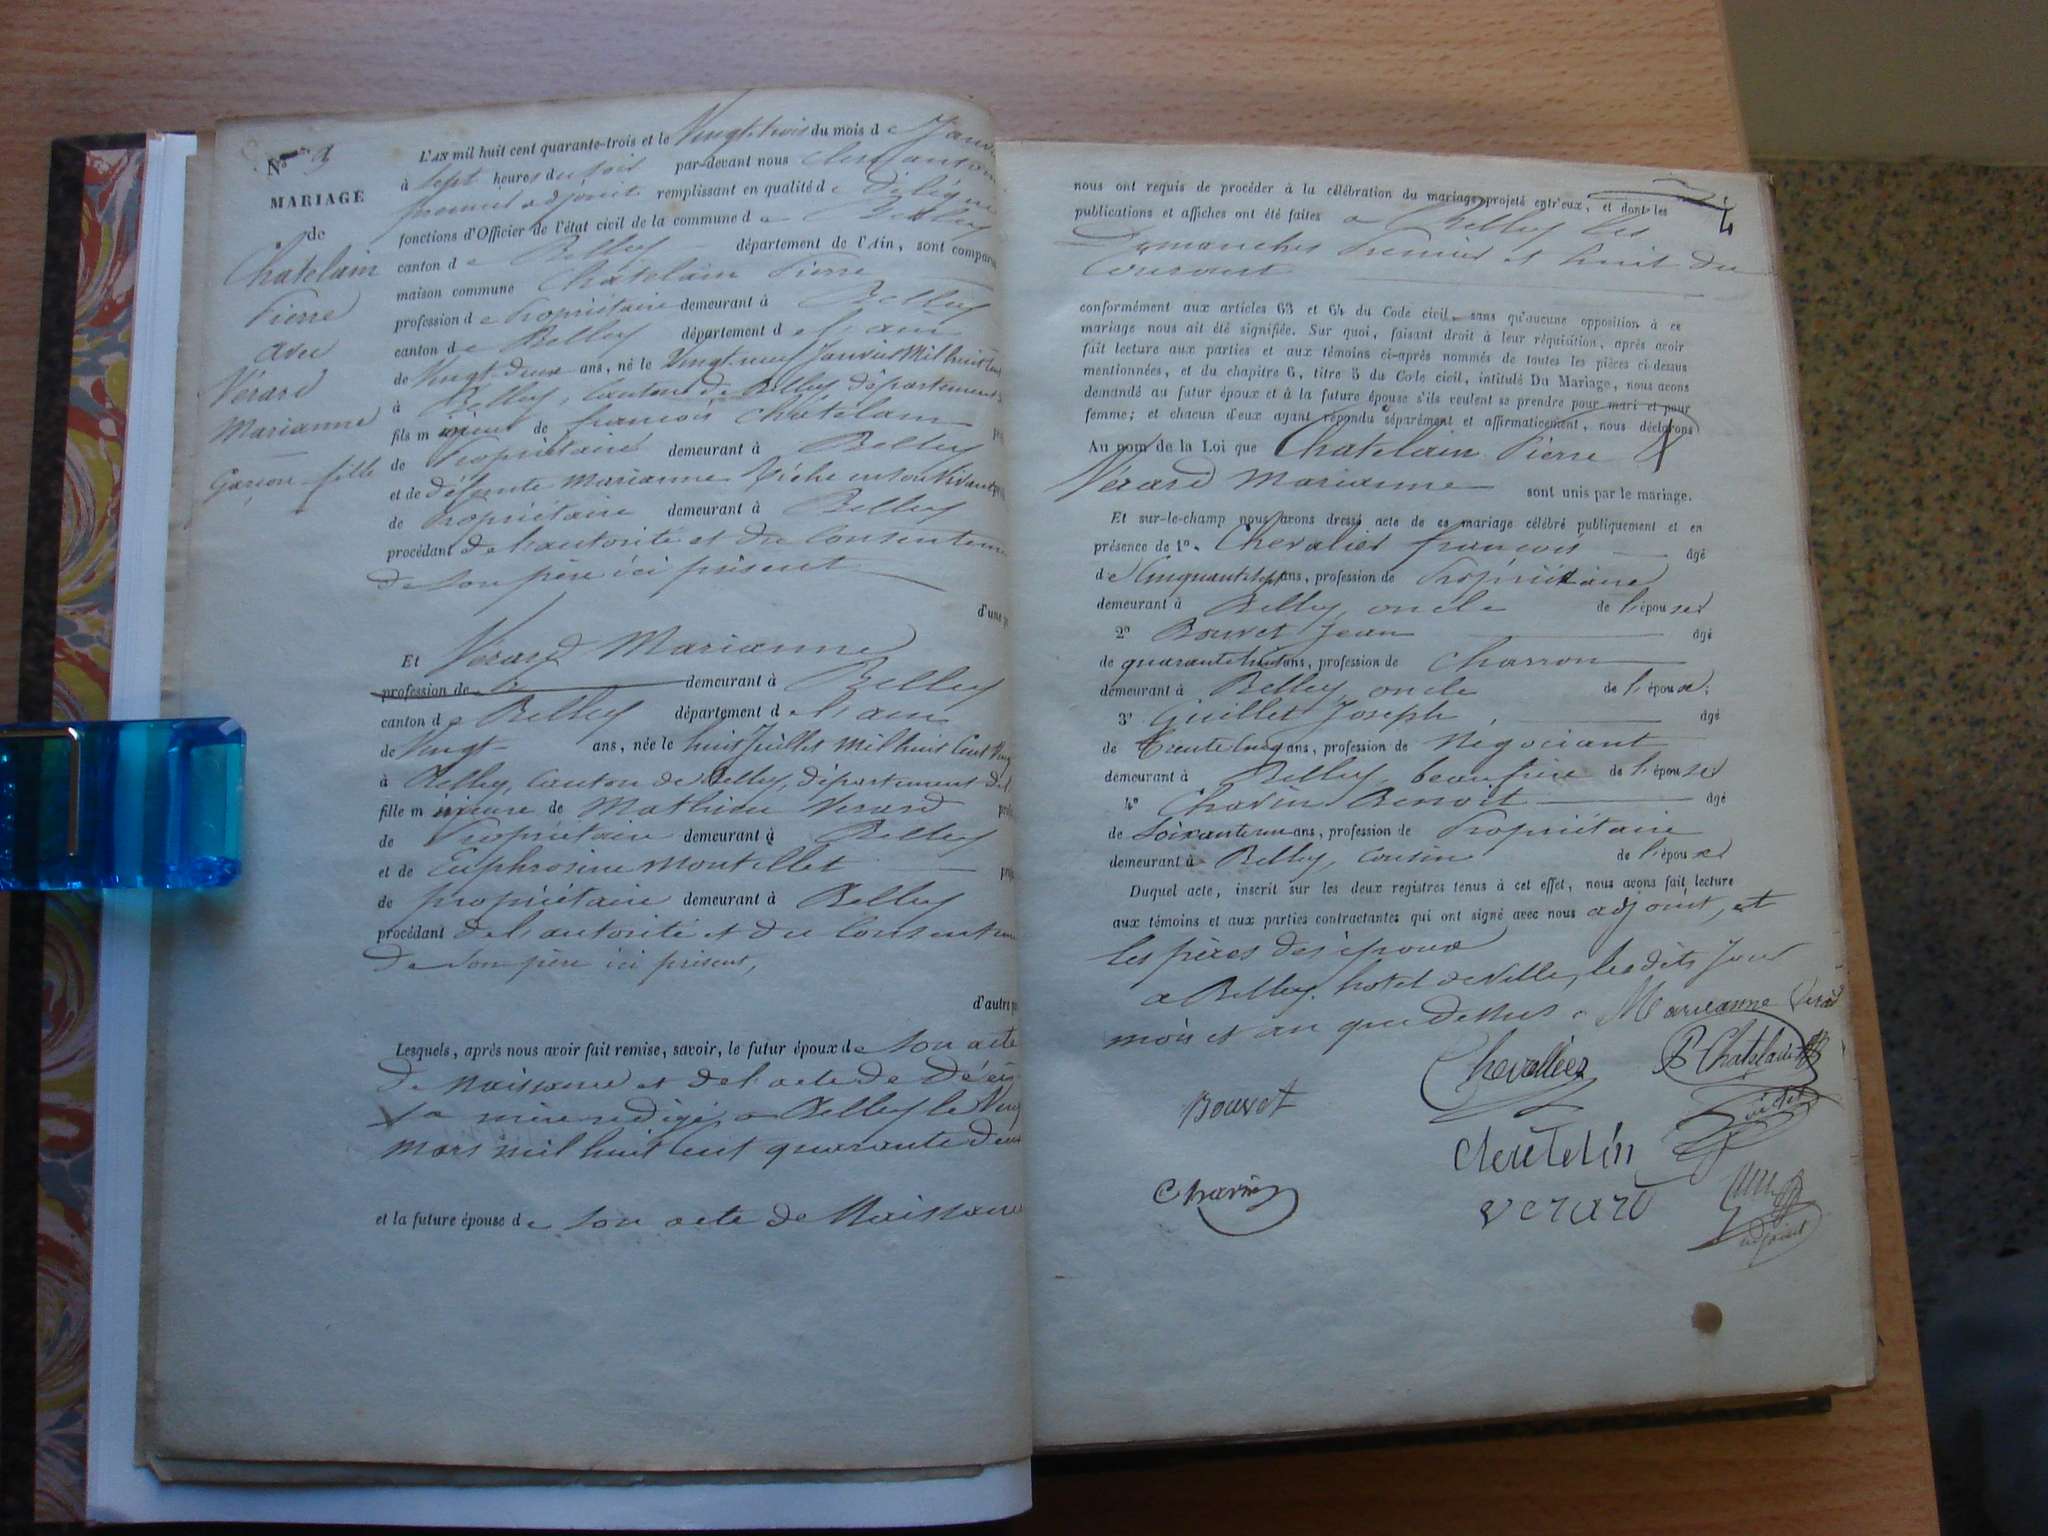 N° 3
MARIAGE
de
Chatelain
Pierre
avec
Vérard
Marianne
Garçon fille
L'AN mil huit cent quarante-trois et le Vingt trois du mois de Janv
à Sept heures du soir par-devant nous
premier adjoint remplissant en qualité de Délégué
fonctions d'Officier de l'état civil de la commune de Belley
canton de Belley département de l'Ain, sont comparu
maison commune Chatelain Pierre
profession de Propriétaire demeurant à Belley
canton de Belley département de l'ain
de Vingt-deux ans, né le Vingt-neuf Janvier Mil huit cent
à Belley, Canton de Belley département
fils mineur de françois Châtelain
de Propriétaire demeurant à Belley
et de défunte Marianne en son vivant
de Propriétaire demeurant à Belley
procédant de l'autorité et du Consenteme
de son père ici présent
d'une p
Et Vérard Marianne
profession de demeurant à Belley
canton de Belley département de l'ain
de Vingt ans, née le huit Juillet Mil huit Cent Ving
à Belley, Canton de Belley, département de l
fille mineure de Mathieu Verard
de Propriétaire demeurant à Belley
et de Euphrosine Montillet
de propriétaire demeurant à Belley
procédant de l'autorité et du Consentem
de son père ici présent,
d'autre p
Lesquels, après nous avoir fait remise, savoir, le futur époux de son acte
de Naissance et de l'acte de décè
sa mère redigé, a Belley le Ving
mars mil huit cent quarante deux
et la future épouse de son acte de Naissance
4
nous ont requis de procéder à la célébration du mariage projeté entr'eux, et dont les
publications et affiches ont été faites a Belley les
Dimanches Premier et huit du
Courant
conformément aux articles 63 et 64 du Code civil, sans qu'aucune opposition à ce
mariage nous ait été signifiée. Sur quoi, faisant droit à leur réquisition, après avoir
fait lecture aux parties et aux témoins ci-après nommés de toutes les pièces ci-dessus
mentionnées, et du chapitre 6, titre 5 du Code civil, intitulé Du Mariage, nous avons
demandé au futur époux et à la future épouse s'ils veulent se prendre pour mari et pour
femme; et chacun d'eux ayant répondu séparément et affirmativement, nous déclarons
Au nom de la Loi que Chatelain Pierre &
Vérard Marianne sont unis par le mariage.
Et sur-le-champ nous avons dressé acte de ce mariage célébré publiquement et en
présence de 1°. Chevalier françois âgé
de Cinquante sept ans, profession de Propriétaire
demeurant à Belley, oncle de l'épouse
2° Bouvet Jean âgé
de quarante huit ans, profession de Charron
demeurant à Belley, oncle de l'épouse;
3° Guillet Joseph, âgé
de trente cinq ans, profession de Negociant
demeurant à Belley, beau frère de l'épouse
4° Chavin Benoit âgé
de Soixante un ans, profession de Propriétaire
demeurant à Belley, Cousin de l'épouse
Duquel acte, inscrit sur les deux registres tenus à cet effet, nous avons fait lecture
aux témoins et aux parties contractantes qui ont signé avec nous adjoint, et
les pères des époux
a Belley, hotel de Ville, les dits jour
mois et an que dessus. Marianne Verard
Chevallier P Chatelain
Bouvet
Chavin
verard
adjoint